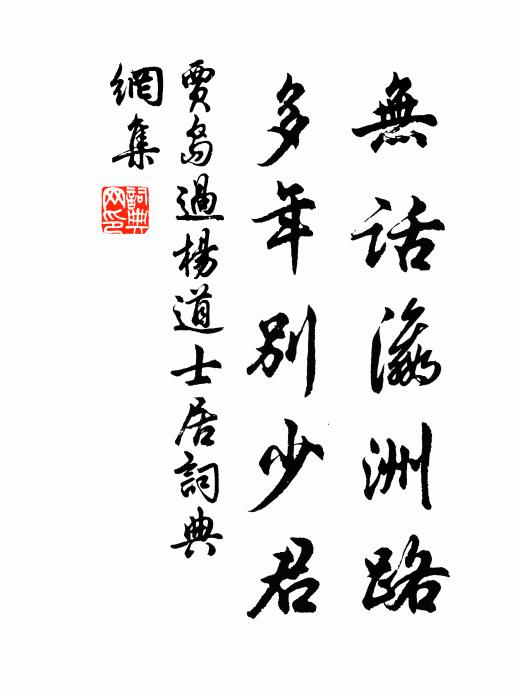 無話瀛洲路
多年別少君
賈島過楊道士居詞典
網集
詞典
网印